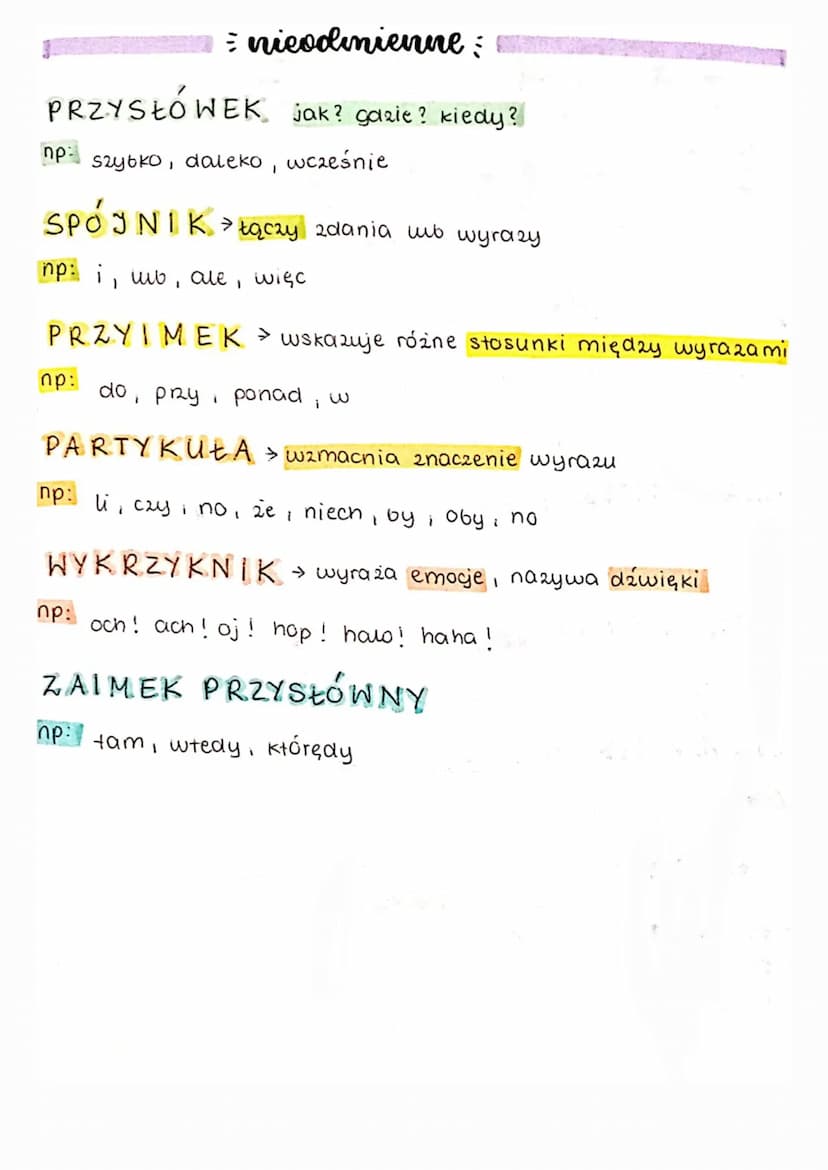 nieodmienne
PRZYSŁÓWEK jak? gdzie? kiedy?
np: szybko, daleko, wcześnie
SPÓJNIK > łączy zdania lub wyrazy
np: i, lub, ale, więc
PRZYIMEK > wskazuje różne stosunki między wyrazami
np: do, przy, ponad, w
PARTYKUŁA > wzmacnia znaczenie wyrazu
np: li, czy, no, że, niech, by, oby, no
WYKRZYKNIK → wyraża emocje, nazywa dźwięki
np: och! ach! oj! hop! halo! haha!
ZAIMEK PRZYSŁÓWNY
np: tam, wtedy, którędy